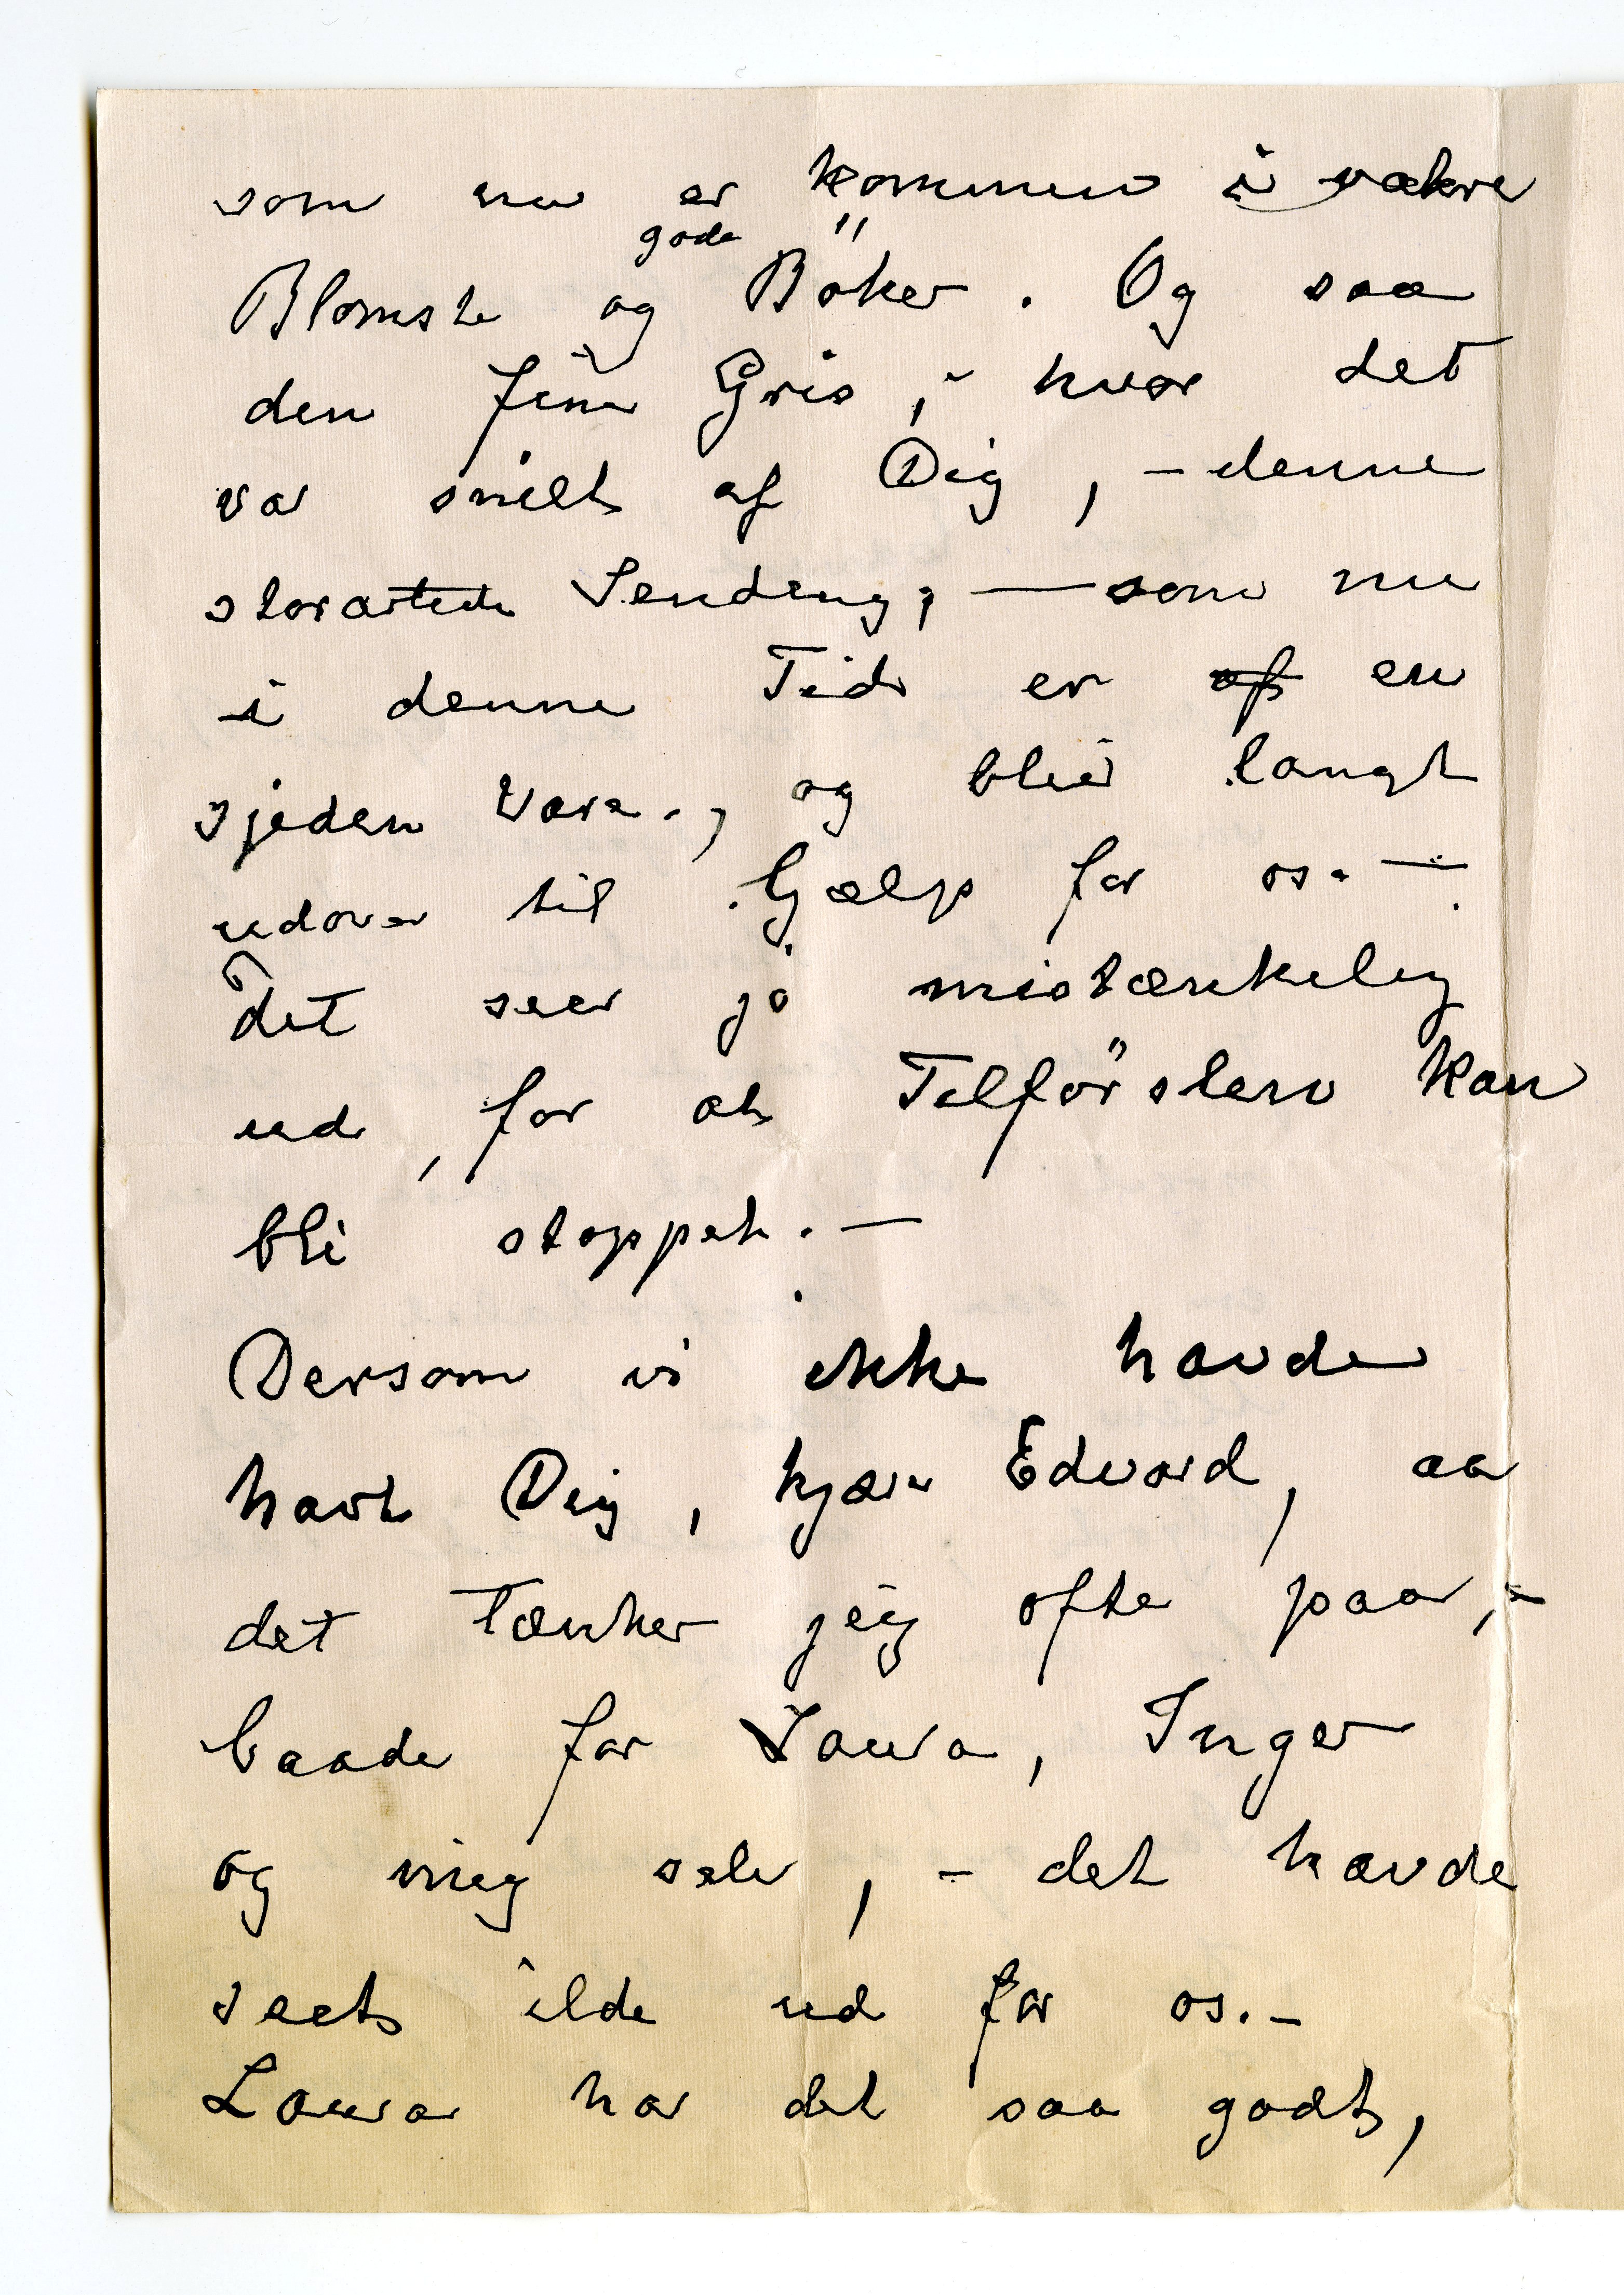 som nu er kommen i vakre
gode
Blomste og Böker. Og saa
den fine Gris, - hvor det
var snilt af Dig, - denne
storartede Sending, — som nu
i denne Tid er af en
sjeden Vare., og bliv langt
udover til Hjælp for os. —
Det seer jo mistænkelig
ud, for at Tilförslen kan
bli stoppet. —
Dersom vi ikke havde
havt Dig, kjære Edvard, aa
det tænker jeg ofte paa, -
baade for Laura, Inger
og mig selv, - det havde
seet ilde ud for os. -
Laura har det saa godt,